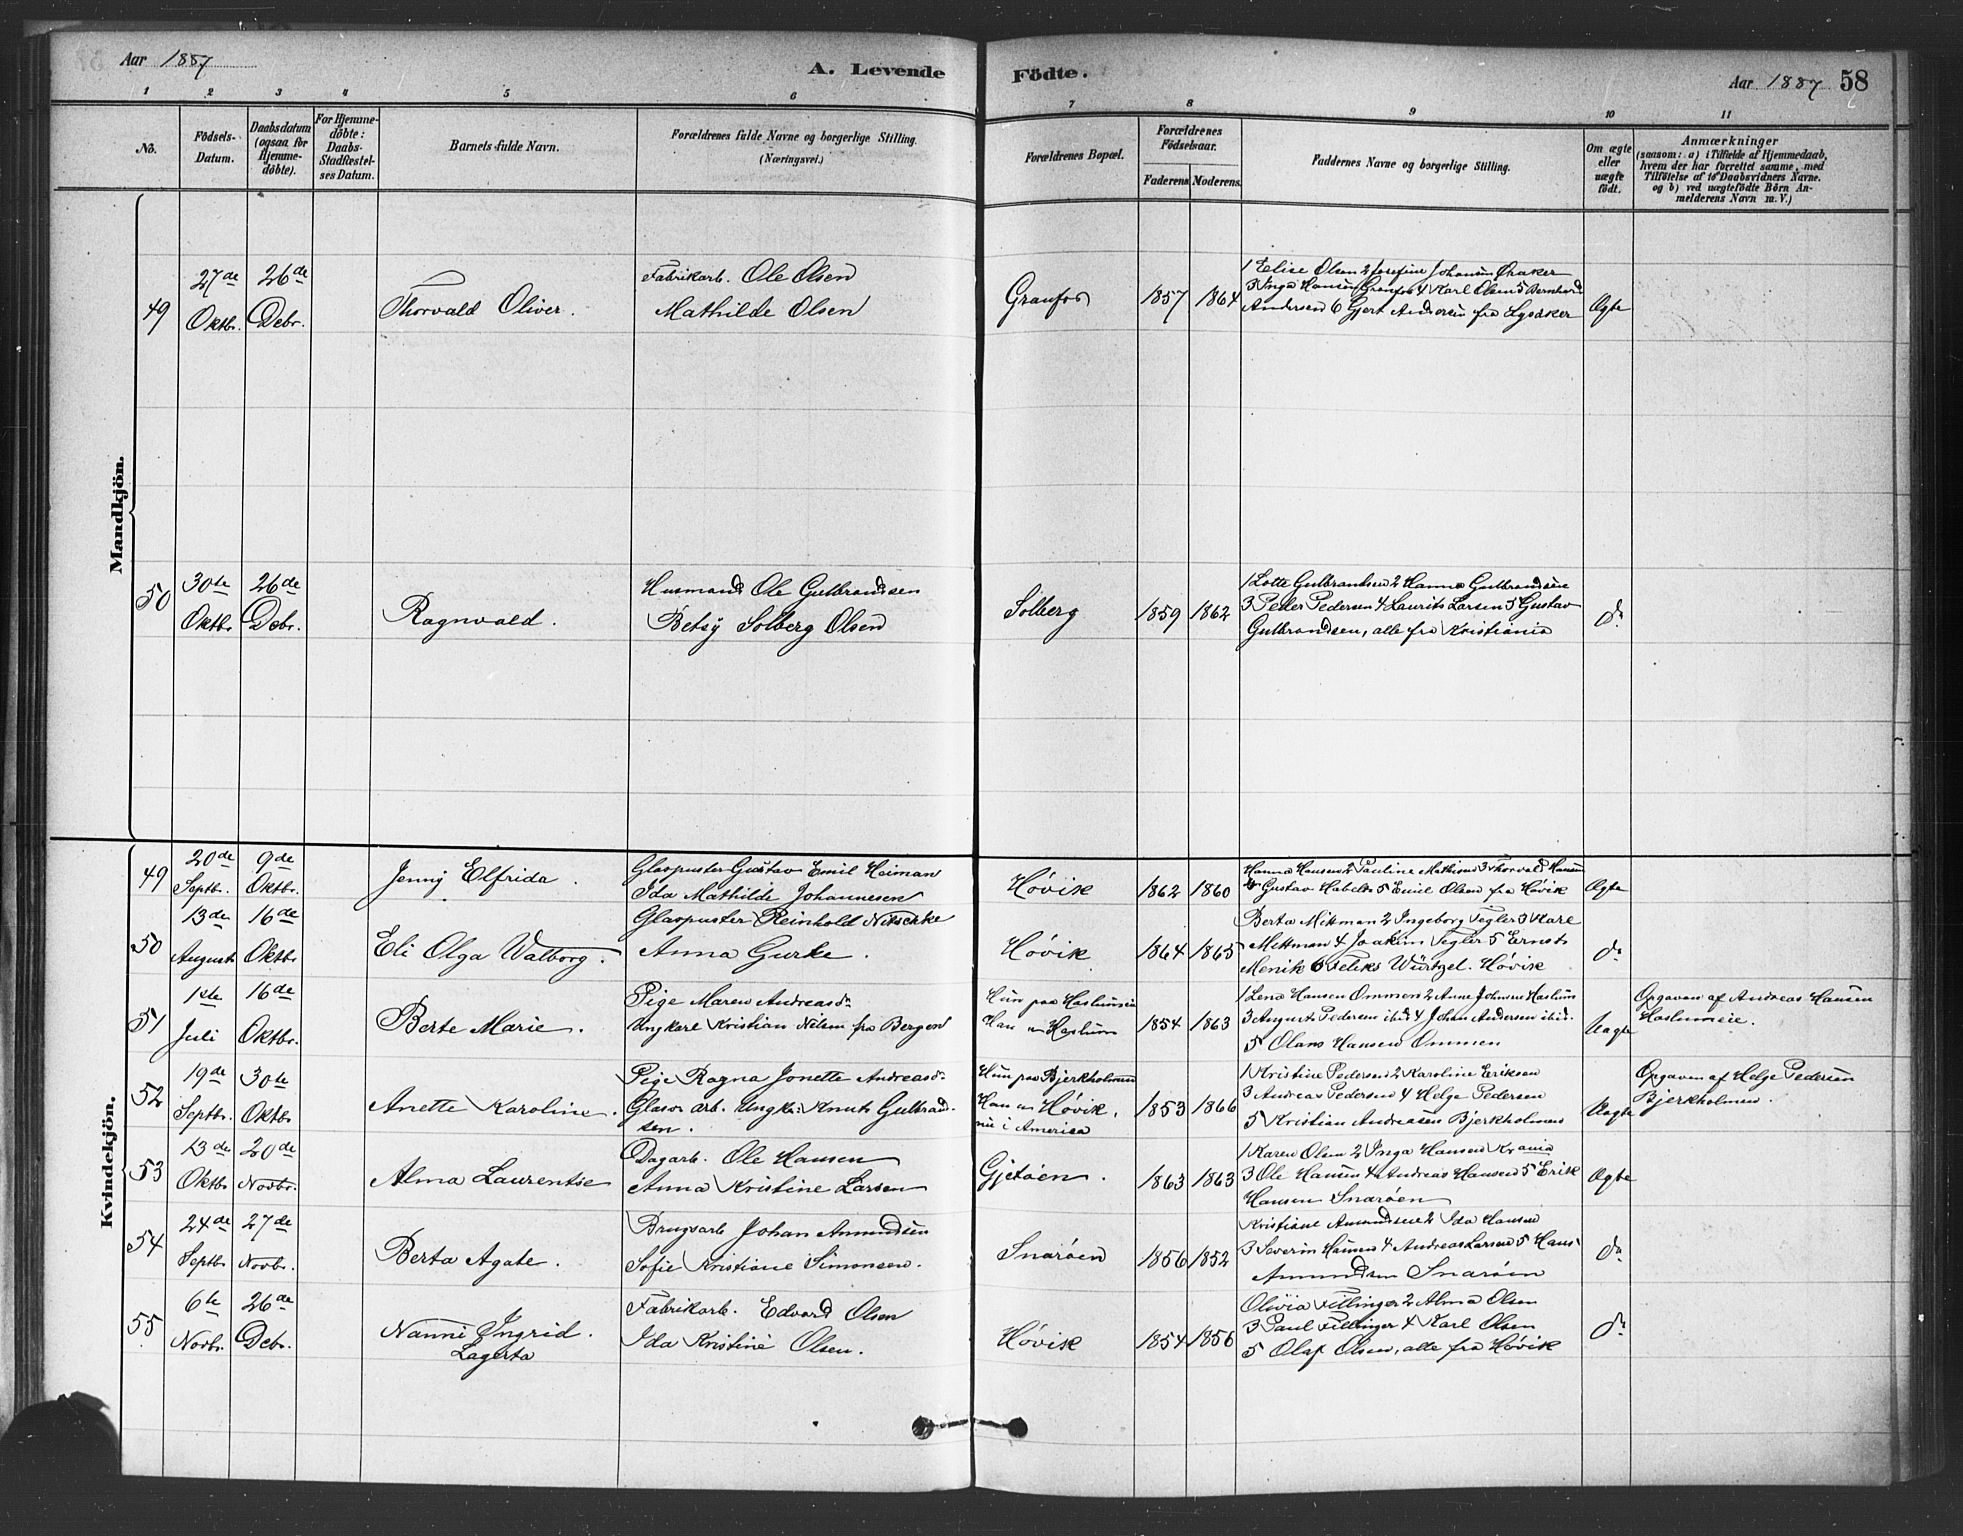 Aar 1887
A. Levende Födte.
Aar 1887 58
1 2 3 4 5 6 7 8 9 10 11
No.
Födsels-
Datum.
Daabsdatum
(ogsaa for
Hjemme-
döbte).
For Hjemme-
döbte:
Daabs-
Stadfestel-
ses Datum.
Barnets fulde Navn.
Forældrenes fulde Navne og borgerlige Stilling.
(Næringsvei.)
Forældrenes Bopæl.
Forældrenes
Födselsaar.
Faderens Moderens
Faddernes Navne og borgerlige Stilling.
Om ægte
eller
uægte
födt.
Anmærkninger
(saasom: a) i Tilfælde af Hjemmedaab,
hvem der har forrettet samme, med
Tilföielse af to Daabsvidners Navne.
og b) ved uægtefödte Börn An-
melderens Navn m. V.)
Mandkjön.
49
27de
Oktbr.
26de
Debr.
Thorvald Oliver.
Fabrikarb. Ole Olsen
Mathilde Olsen
Granfos
1857 1864
1 Elise Olsen 2 Josefine Johansen Øraker
3 Inga Hansen Granfos 4 Karl Olsen 5 Bernhard
Andersen 6 Gjert Andersen fra Lysaker
Ægte
50
30te
Oktbr
26de
Debr.
Ragnvald.
Husmand Ole Gulbrandsen
Betsy Solberg Olsen
Solberg
1859 1862
1 Lotte Gulbrandsen 2 Hanna Gulbrandsen
3 Peder Pedersen 4 Laurits Larsen 5 Gustav
Gulbrandsen, alle fra Kristiania
do
Kvindekjön.
49
20de
Septbr.
9de
Oktbr.
Jenny Elfrida.
Glaspuster Gustav Emil Heiman
Ida Mathilde Johannesen
Høvik
1862 1860
Hanna Hansen 2 Pauline Mathisen 3 Thorvald Hansen
4 Gustav Habelts 5 Emil Olsen fra Høvik
Ægte
50
13de
August
16de
Oktbr
Eli Olga Walborg.
Glaspuster Reinhold Nitschke
Anna Gurke.
Høvik
1864 1865
Berta Mittman 2 Ingeborg Tegler 3 Karl
Mittman 4 Joakim Tegler 5 Ernst
Menik 6 Feliks Würtzel. Høvik
do
51
1ste
Juli
16de
Oktbr.
Berte Marie.
Pige Maren Andreasdr
Ungkarl Kristian Nilsen fra Bergen
Hun paa Haslumseie
Han " Haslum
1854 1863
1 Lena Hansen Ommen 2 Anne Johnsen Haslum
3 August Pedersen ibid 4 Johan Andersen ibid.
5 Olaus Hansen Ommen
Uægte
Opgaven af Andreas Hansen
Haslumeie.
52
19de
Septbr.
30te
Oktbr
Anette Karoline.
Pige Ragna Jonette Andreasdr
Glasv. arb. Ungk. Knut Gulbrand-
sen.
Hun paa Bjerkholmen
Han " Høvik.
nu i America
1853 1866
1 Kristine Pedersen 2 Karoline Eriksen
3 Andreas Pedersen 4 Helge Pedersen
5 Kristian Andreasen Bjerkholmen
Uægte
Opgaven af Helge Pedersen
Bjerkholmen.
53
13de
Oktbr
20de
Novbr.
Alma Laurentse
Dagarb. Ole Hansen
Anna Kristine Larsen
Gjetøen.
1863 1863
1 Karen Olsen 2 Inga Hansen Krania
3 Ole Hansen 4 Andreas Hansen 5 Erik
Hansen Snarøen
Ægte
54
24de
Septbr
27de
Novbr.
Berta Agate.
Brugsarb Johan Amundsen
Sofie Kristiane Simonsen.
Snarøen
1856 1852
Kristiane Amundsen 2 Ida Hansen
3 Severin Hansen 4 Andreas Larsen 5 Hans
Amundsen Snarøen
do
55
6te
Novbr.
26de
Debr.
Nanni Ingrid.
Lagerta
Fabrikarb. Edvard Olsen
Ida Kristine Olsen.
Høvik
1854 1856
Olivia Fillinger 2 Alma Olsen
3 Paul Fillinger 4 Karl Olsen
5 Olaf Olsen, alle fra Høvik
do